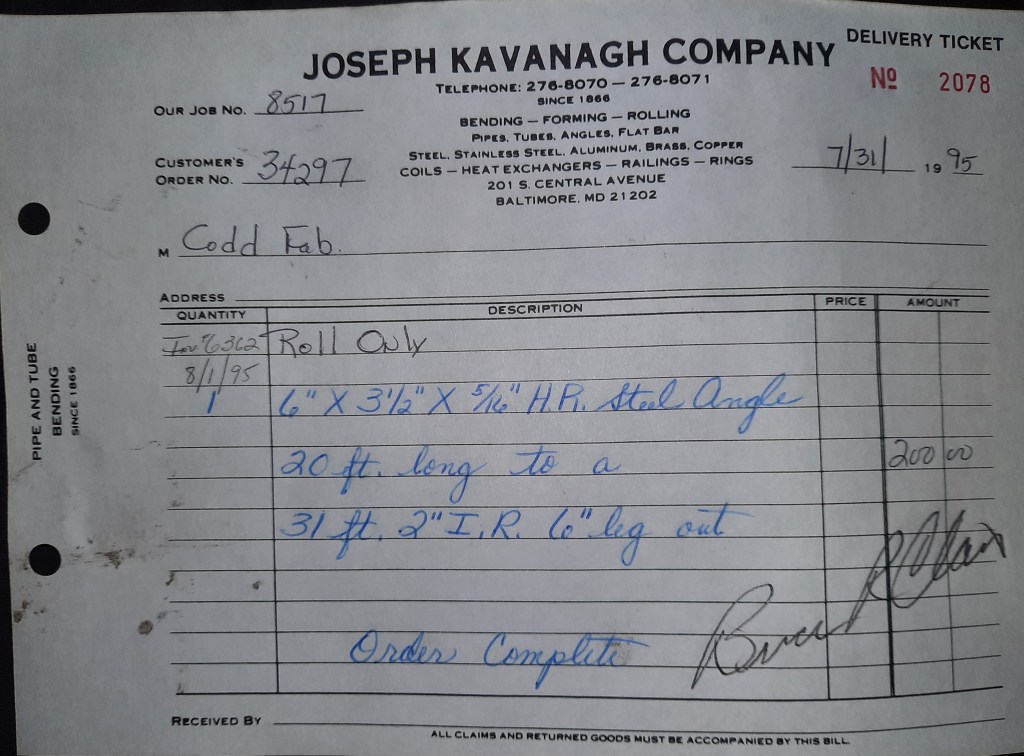 DELIVERY TICKET
JOSEPH KAVANAGH COMPANY
Nº 2078
TELEPHONE: 276-8070 — 276-8071
SINCE 1866
OUR JOB NO. 8517
BENDING — FORMING — ROLLING
PIPES, TUBES, ANGLES, FLAT BAR
STEEL, STAINLESS STEEL, ALUMINUM, BRASS, COPPER
CUSTOMER'S ORDER NO. 34297
COILS — HEAT EXCHANGERS — RAILINGS — RINGS
7/31/ 19 95
201 S. CENTRAL AVENUE
BALTIMORE, MD 21202
M Codd Fab.
ADDRESS
QUANTITY DESCRIPTION PRICE AMOUNT
Inv 6362 Roll Only
8/1/95
1 6" X 3 1/2" X 5/16" H.R. Steel Angle
20 ft. long to a 200 00
31 ft. 2" I.R. 6" leg out
Order Complete
RECEIVED BY
ALL CLAIMS AND RETURNED GOODS MUST BE ACCOMPANIED BY THIS BILL
PIPE AND TUBE
BENDING
SINCE 1866